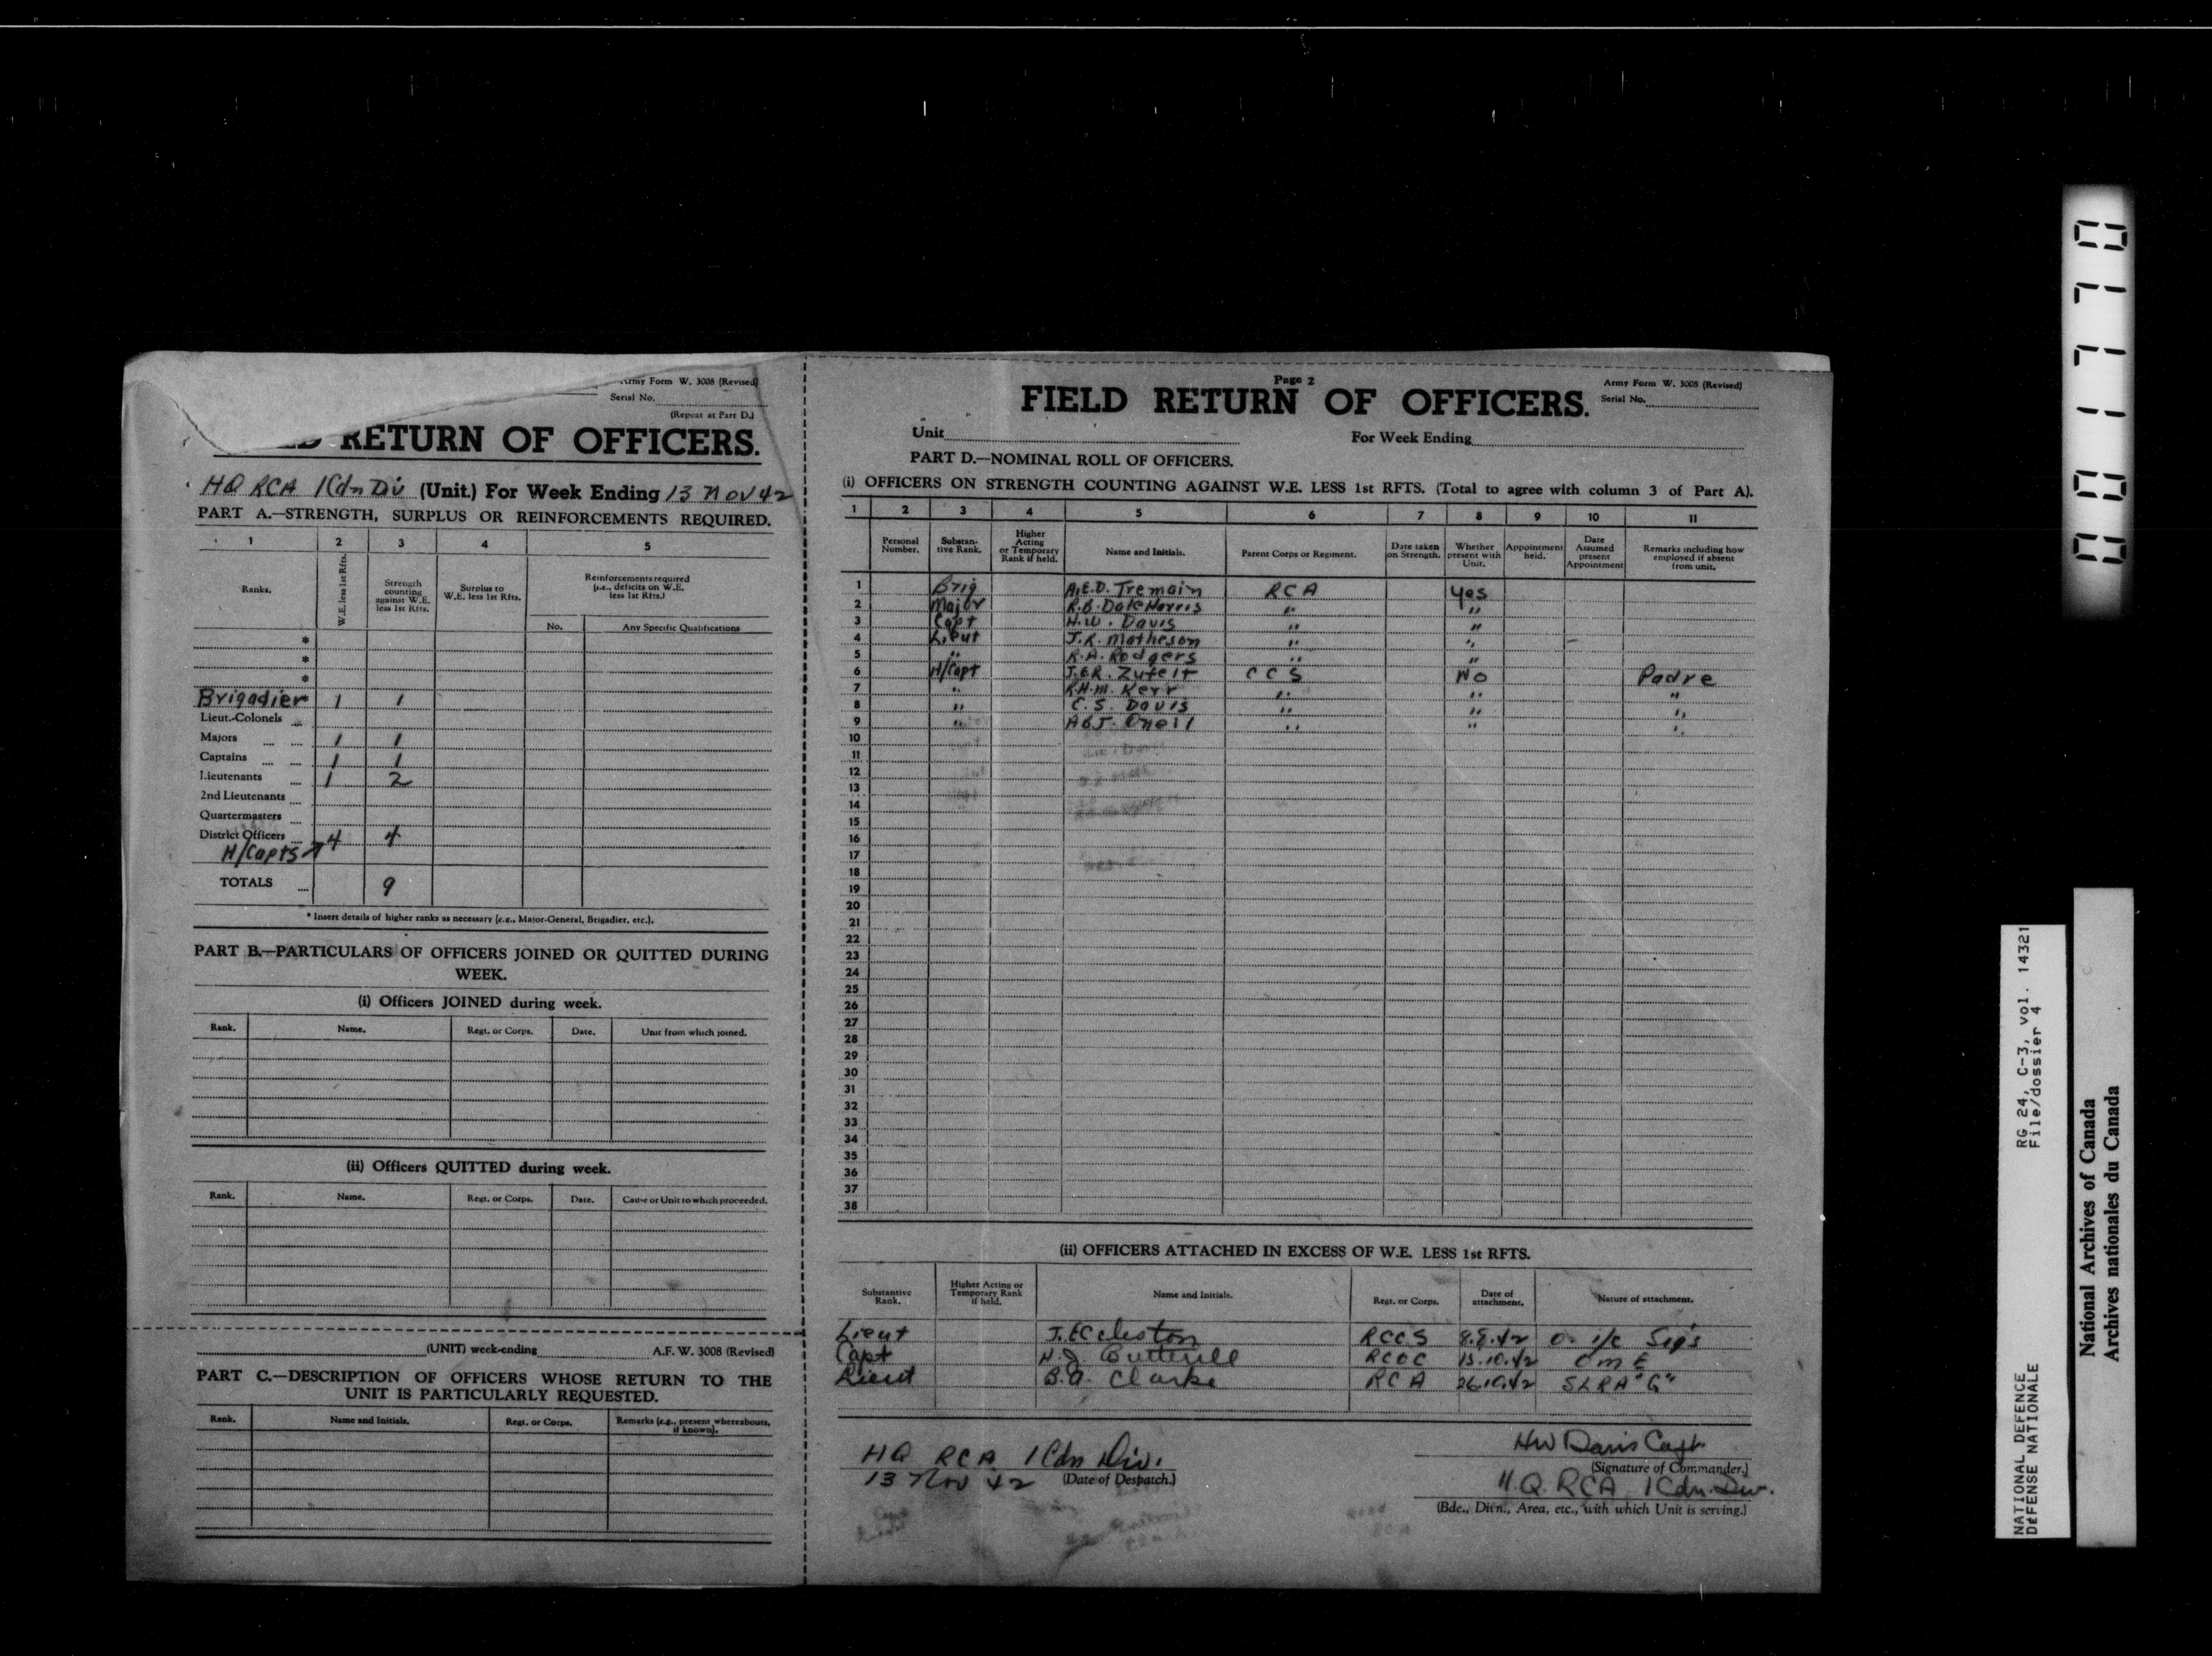 Army Form W. 3008 (Revised)
Serial No.
(Repeat at Part D.)
RETURN OF OFFICERS.
HQ RCA 1 Cdn Div (Unit.) For Week Ending 13 Nov 42
PART A.—STRENGTH, SURPLUS OR REINFORCEMENTS REQUIRED.
1 2 3 4 5
Ranks. W.E. less 1st Rfts. Strength counting against W.E. less 1st Rfts. Surplus to W.E. less 1st Rfts. Reinforcements required (i.e., deficits on W.E. less 1st Rfts.)
No. Any Specific Qualifications
*
*
*
Brigadier* 1 1
Lieut.-Colonels
Majors 1 1
Captains 1 1
Lieutenants 1 2
2nd Lieutenants
Quartermasters
District Officers 4 4
H/Capts
TOTALS 9
* Insert details of higher ranks as necessary (e.g., Major-General, Brigadier, etc.).
PART B.—PARTICULARS OF OFFICERS JOINED OR QUITTED DURING
WEEK.
(i) Officers JOINED during week.
Rank. Name. Regt. or Corps. Date. Unit from which joined.
(ii) Officers QUITTED during week.
Rank. Name. Regt. or Corps. Date. Cause or Unit to which proceeded.
(UNIT) week-ending A.F. W. 3008 (Revised)
PART C.—DESCRIPTION OF OFFICERS WHOSE RETURN TO THE
UNIT IS PARTICULARLY REQUESTED.
Rank. Name and Initials. Regt. or Corps. Remarks (e.g., present whereabouts, if known).
Page 2
Army Form W. 3008 (Revised)
FIELD RETURN OF OFFICERS.
Serial No.
Unit For Week Ending
PART D.—NOMINAL ROLL OF OFFICERS.
(i) OFFICERS ON STRENGTH COUNTING AGAINST W.E. LESS 1st RFTS. (Total to agree with column 3 of Part A).
1 2 3 4 5 6 7 8 9 10 11
Personal Number. Substantive Rank. Higher Acting or Temporary Rank if held. Name and Initials. Parent Corps or Regiment. Date taken on Strength. Whether present with Unit. Appointment held. Date Assumed present Appointment Remarks including how employed if absent from unit.
1 Brig A.E.D. Tremain RCA Yes
2 Major R.B. Dale Harris " "
3 Capt H.W. Davis " "
4 Lieut J.R. Matheson " "
5 " R.A. Rodgers " "
6 H/Capt J.E.R. Zufelt CCS No Padre
7 " R.H.M. Kerr " " "
8 " C.S. Davis " " "
9 " A B J. Oneil " " "
10
11
12
13
14
15
16
17
18
19
20
21
22
23
24
25
26
27
28
29
30
31
32
33
34
35
36
37
38
(ii) OFFICERS ATTACHED IN EXCESS OF W.E. LESS 1st RFTS.
Substantive Rank. Higher Acting or Temporary Rank if held. Name and Initials. Regt. or Corps. Date of attachment. Nature of attachment.
Lieut J. Eccleston RCCS 8.8.42 O. i/c Sigs
Capt H.J. Butterill RCOC 15.10.42 O M E
Lieut B.A. Clarke RCA 26.10.42 SLRA "G"
HQ RCA 1 Cdn Div.
13 Nov 42 (Date of Despatch.)
HW Davis Capt.
(Signature of Commander.)
H.Q. RCA 1 Cdn. Div.
(Bde., Divn., Area, etc., with which Unit is serving.)
001770
RG 24, C-3, vol. 14321
File/dossier 4
NATIONAL DEFENCE
DEFENSE NATIONALE
National Archives of Canada
Archives nationales du Canada